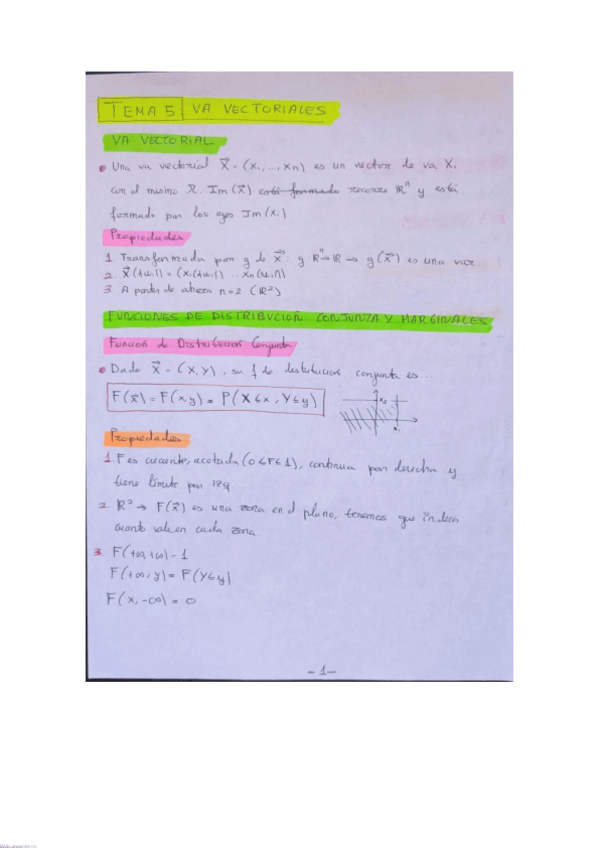 TEMA 5 VA VECTORIALES
VA VECTORIAL
• Una va vectorial X⃗ = (X₁, ..., Xn) es un vector de va Xi
con el mismo Ω. Im(X⃗) está formado recorre ℝⁿ y está
formado por los ejes Im(Xi)
Propiedades
1 Transformada por g de X⃗: g ℝⁿ→ℝ → g(X⃗) es una var.
2. X⃗
3 A partir de ahora n=2 (ℝ²)
FUNCIONES DE DISTRIBUCION CONJUNTA Y MARGINALES
Funcion de Distribucion Conjunta
• Dado X⃗ = (X,Y), su f de distribucion conjunta es...
F(x⃗) = F(x,y) = P(X≤x, Y≤y)
Propiedades
1 F es creciente, acotada (0≤F≤1), continua por derecha y
tiene límite por izq.
2. ℝ² → F(x⃗) es una zona en el plano, tenemos que indicar
cuanto vale en cada zona.
3. F(+∞,+∞) = 1
F(+∞, y) = F(Y≤y)
F(x, -∞) = 0
- 1 -